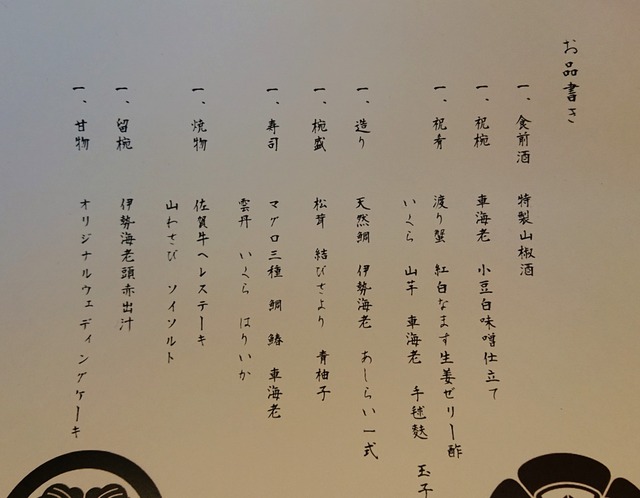 お品書き
一、食前酒 特製山椒酒
一、祝椀 車海老 小豆白味噌仕立て
一、祝肴 渡り蟹 紅白なます生姜ゼリー酢
いくら 山芋 車海老 手毬麩 玉子
一、造り 天然鯛 伊勢海老 あしらい一式
一、椀盛 松茸 結びさより 青柚子
一、寿司 マグロ三種 鯛 鰆 車海老
雲丹 いくら はりいか
一、焼物 佐賀牛ヘレステーキ
山わさび ソイソルト
一、留椀 伊勢海老頭赤出汁
一、甘物 オリジナルウェディングケーキ